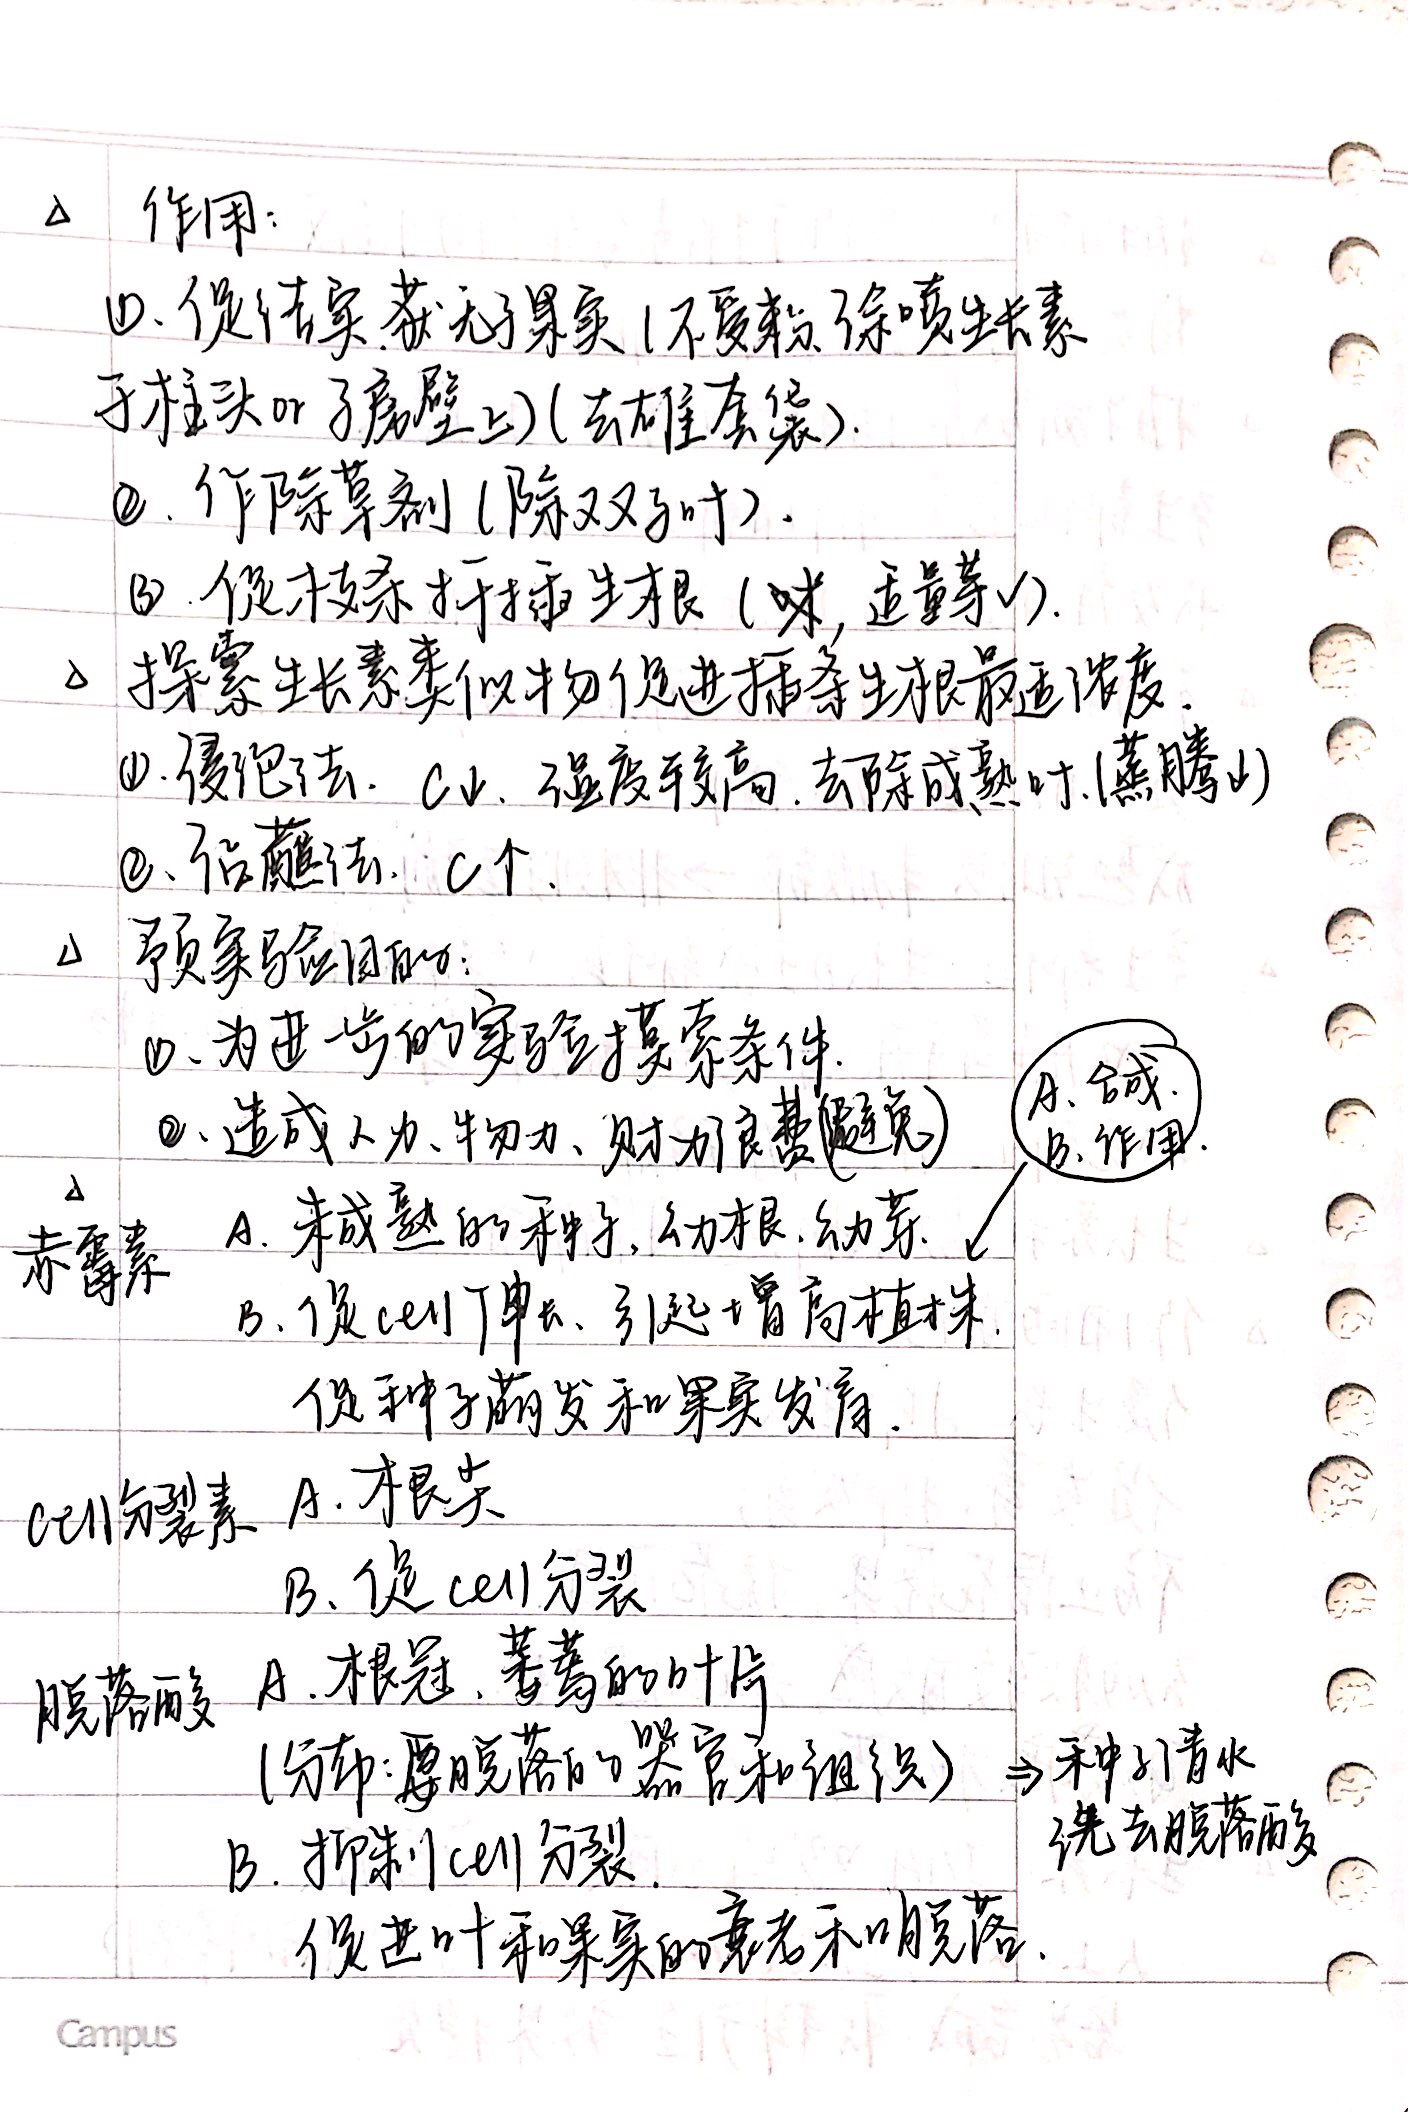 △ 作用:
①、促结实、获无子果实(不受粉、涂喷生长素
于柱头or子房壁上)(去雄套袋).
②. 作除草剂(除双子叶).
③. 促枝条扦插生根( , 适量芽✓).
△ 探索生长素类似物促进插条生根最适浓度.
①.浸泡法. C↓. 湿度较高.去除成熟叶.(蒸腾↓)
②、沾蘸法. C↑.
△ 预实验目的:
①、为进一步的实验摸索条件.
②、造成人力、物力、财力浪费(避免)
A、合成.
B、作用.
△
赤霉素 A. 未成熟的种子,幼根.幼芽.
B、促cell伸长、引起增高植株.
促种子萌发和果实发育.
cell分裂素 A.根尖
B、促cell分裂
脱落酸 A.根冠、萎蔫的叶片
(分布:要脱落的器官和组织) ⇒种子清水
洗去脱落酸
B. 抑制cell分裂.
促进叶和果实的衰老和脱落.
Campus